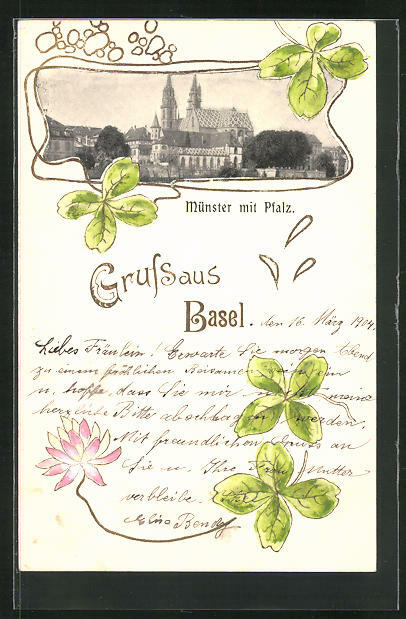 Münster mit Pfalz.
Gruss aus
Basel.
den 16. März 1904.
Liebes Fräulein! Erwarte Sie morgen Abend
zu einem fröhlichen Beisammensein
u. hoffe, dass Sie mir meine
herzliche Bitte abschlagen werden,
Mit freundlichen Gruss an
Sie u. Ihre Frau Mutter
verbleibe
Elise